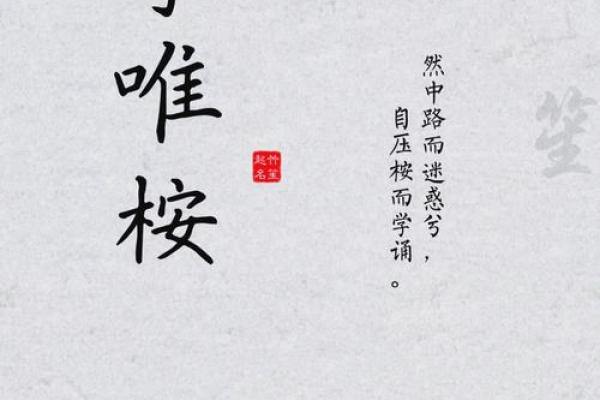 唯桉
竹笙
起名
然中路而迷惑兮，
自压桉而学诵。
笙